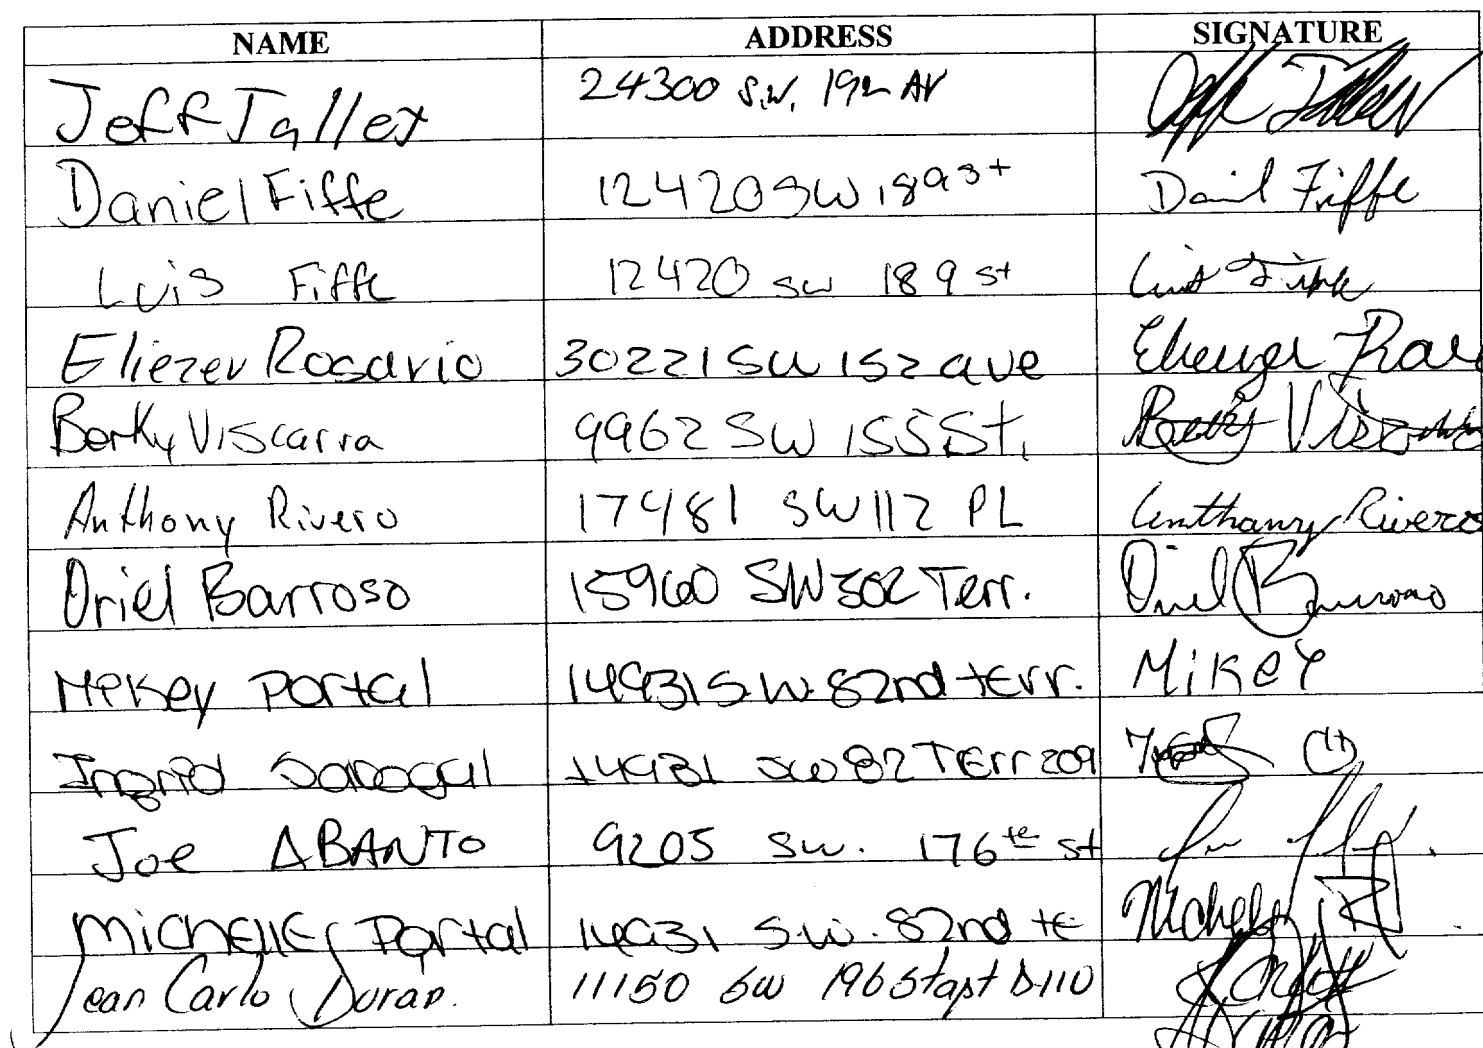 NAME ADDRESS SIGNATURE
Jeff Talley 24300 S.W. 192 AV Jeff Talley
Daniel Fiffe 12420 SW 189 st Daniel Fiffe
Luis Fiffe 12420 SW 189 st Luis Fiffe
Eliezer Rosario 30221 SW 152 ave Eliezer
Berky Viscarra 9962 SW 155 St. Berky
Anthony Rivero 17481 SW 112 PL Anthony Rivero
Oriel Barroso 15960 SW 302 Terr. Oriel Barroso
Mikey Portal 14931 S.W. 82nd terr. Mikey
Ingrid 14931 SW 82 Terr 209
Joe ABANTO 9205 SW. 176 st
MICHELLE Portal 14931 SW. 82nd te Michelle
Jean Carlo Duran. 11150 SW 196 St apt D110